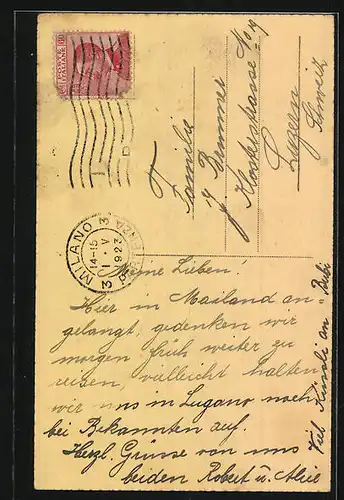 POSTE ITALIANE
MILANO 3
PARTENZA
14-15
1 · V
1923
3
Familie
J. Brunner
Klosterstrasse No 19
Luzern
Schweiz
Meine Lieben!
Hier in Mailand an-
gelangt, gedenken wir
morgen früh weiter zu
reisen, vielleicht halten
wir uns in Lugano noch
bei Bekannten auf.
Herzl. Grüsse von uns
beiden Robert u. Alice
Viel Küssli an Bubi